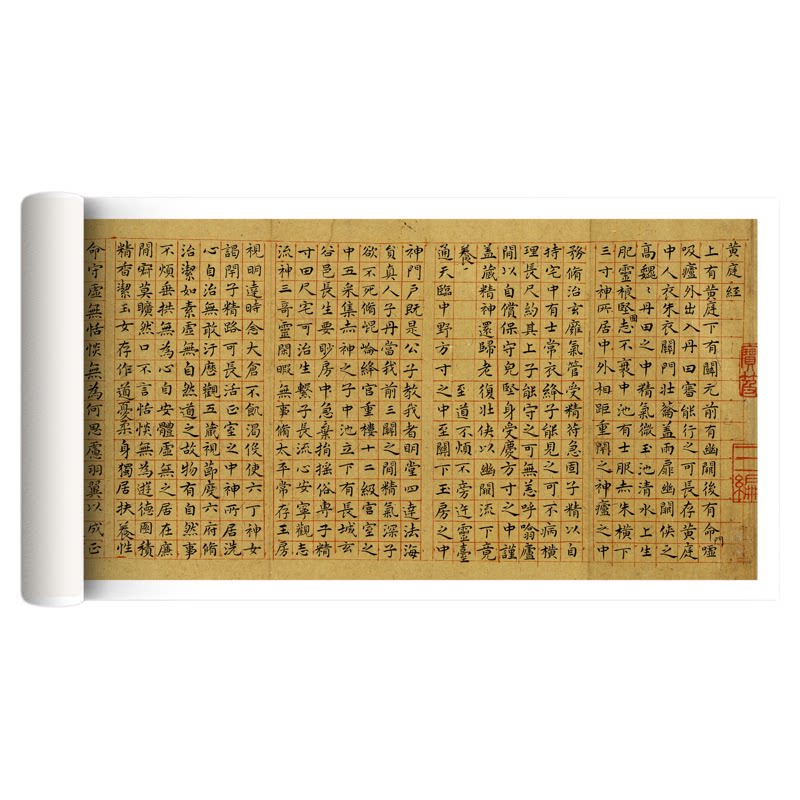 黃庭經
上有黃庭下有關元前有幽闕後有命門噓
吸廬外出入丹田審能行之可長存黃庭
中人衣朱衣關門壯蘥蓋兩扉幽闕俠之
高魏魏丹田之中精氣微玉池清水上生
肥靈根堅固志不衰中池有士服赤朱橫下
三寸神所居中外相距重閉之神廬之中
務脩治玄廱氣管受精符急固子精以自
持宅中有士常衣絳子能見之可不病橫
理長尺約其上子能守之可無恙呼噏廬
間以自償保守完堅身受慶方寸之中謹
蓋藏精神還歸老復壯俠以幽闕流下竟
養至道不煩不旁迕靈臺
通天臨中野方寸之中至關下玉房之中
神門戶既是公子教我者明堂四達法海
員真人子丹當我前三關之間精氣深子
欲不死脩崐崘絳宮重樓十二級宮室之
中五采集赤神之子中池立下有長城玄
谷邑長生要眇房中急棄捐搖俗專子精
寸田尺宅可治生繫子長流心安寧觀志
流神三哥靈閒暇無事脩太平常存玉房
視明達時念大倉不飢渴役使六丁神女
謁閉子精路可長活正室之中神所居洗
心自治無敢汙歷觀五藏視節度六府脩
治潔如素虛無自然道之故物有自然事
不煩垂拱無為心自安體虛無之居在廉
間寂莫曠然口不言恬惔無為遊德園積
精香潔玉女存作道憂柔身獨居扶養性
命守虛無恬惔無為何思慮羽翼以成正
寶笈
三編